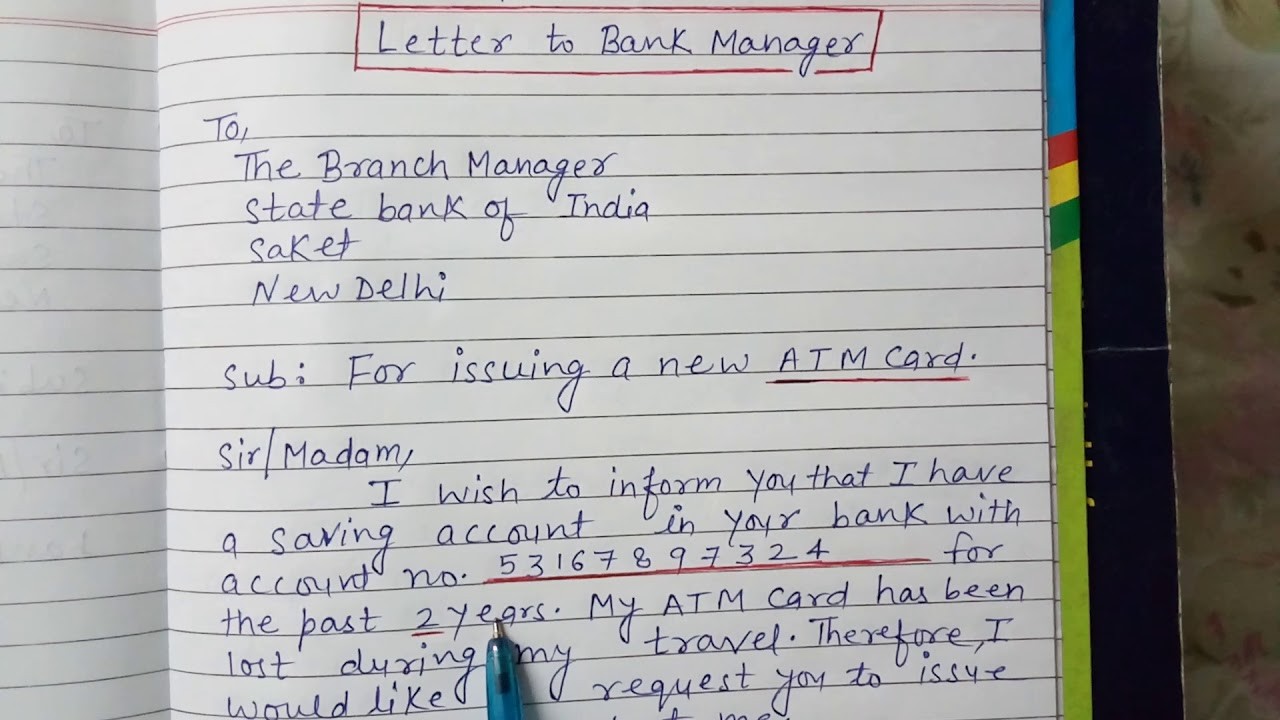 Letter to Bank Manager
To,
The Branch Manager
State bank of India
Saket
New Delhi
Sub: For issuing a new ATM Card.
Sir/Madam,
I wish to inform you that I have
a saving account in your bank with
account no. 53167897324 for
the past 2 years. My ATM Card has been
lost during my travel. Therefore, I
would like request you to issue
me